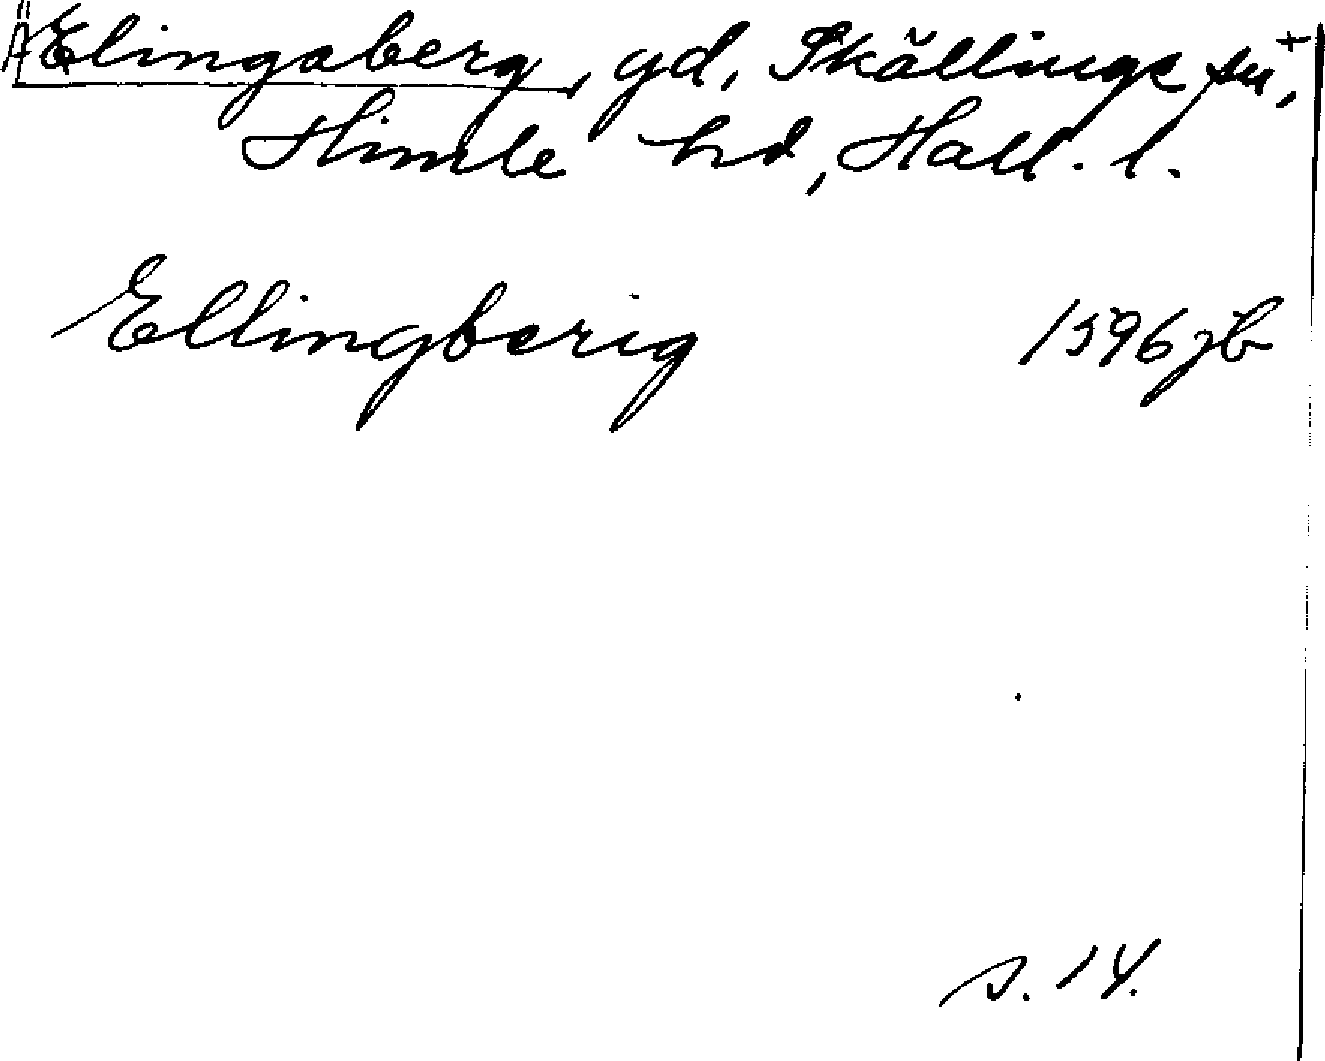 Elingaberg, gd, Skällinge sn+,
Himle hd, Hall. l.
Ellingberig 1596 jb
s. 14.